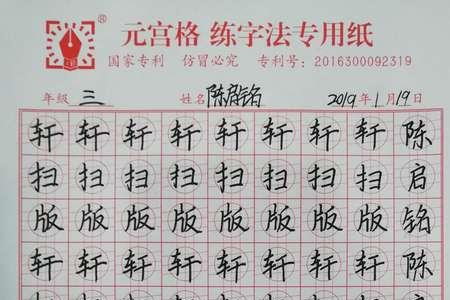 元宫格 练字法专用纸
国家专利 仿冒必究 专利号：2016300092319
年级 三 姓名 陈启铭 2019年1月19日
轩 轩 轩 轩 轩 轩 轩 轩 陈
扫 扫 扫 扫 扫 扫 扫 扫 启
版 版 版 版 版 版 版 版 铭
轩 轩 轩 轩 轩 轩 轩 轩 陈